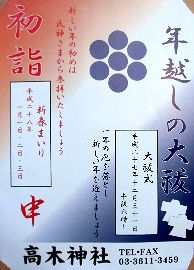 年越しの大祓
大祓式
平成二十七年十二月三十一日
午後六時〜
一年の厄を落とし
新しい年を迎えましょう
初詣
新しい年の初めは
氏神さまから参拝いたしましょう
新春まいり
平成二十八年
一月一日・二日・三日
申
高木神社
TEL・FAX
03-3611-3459